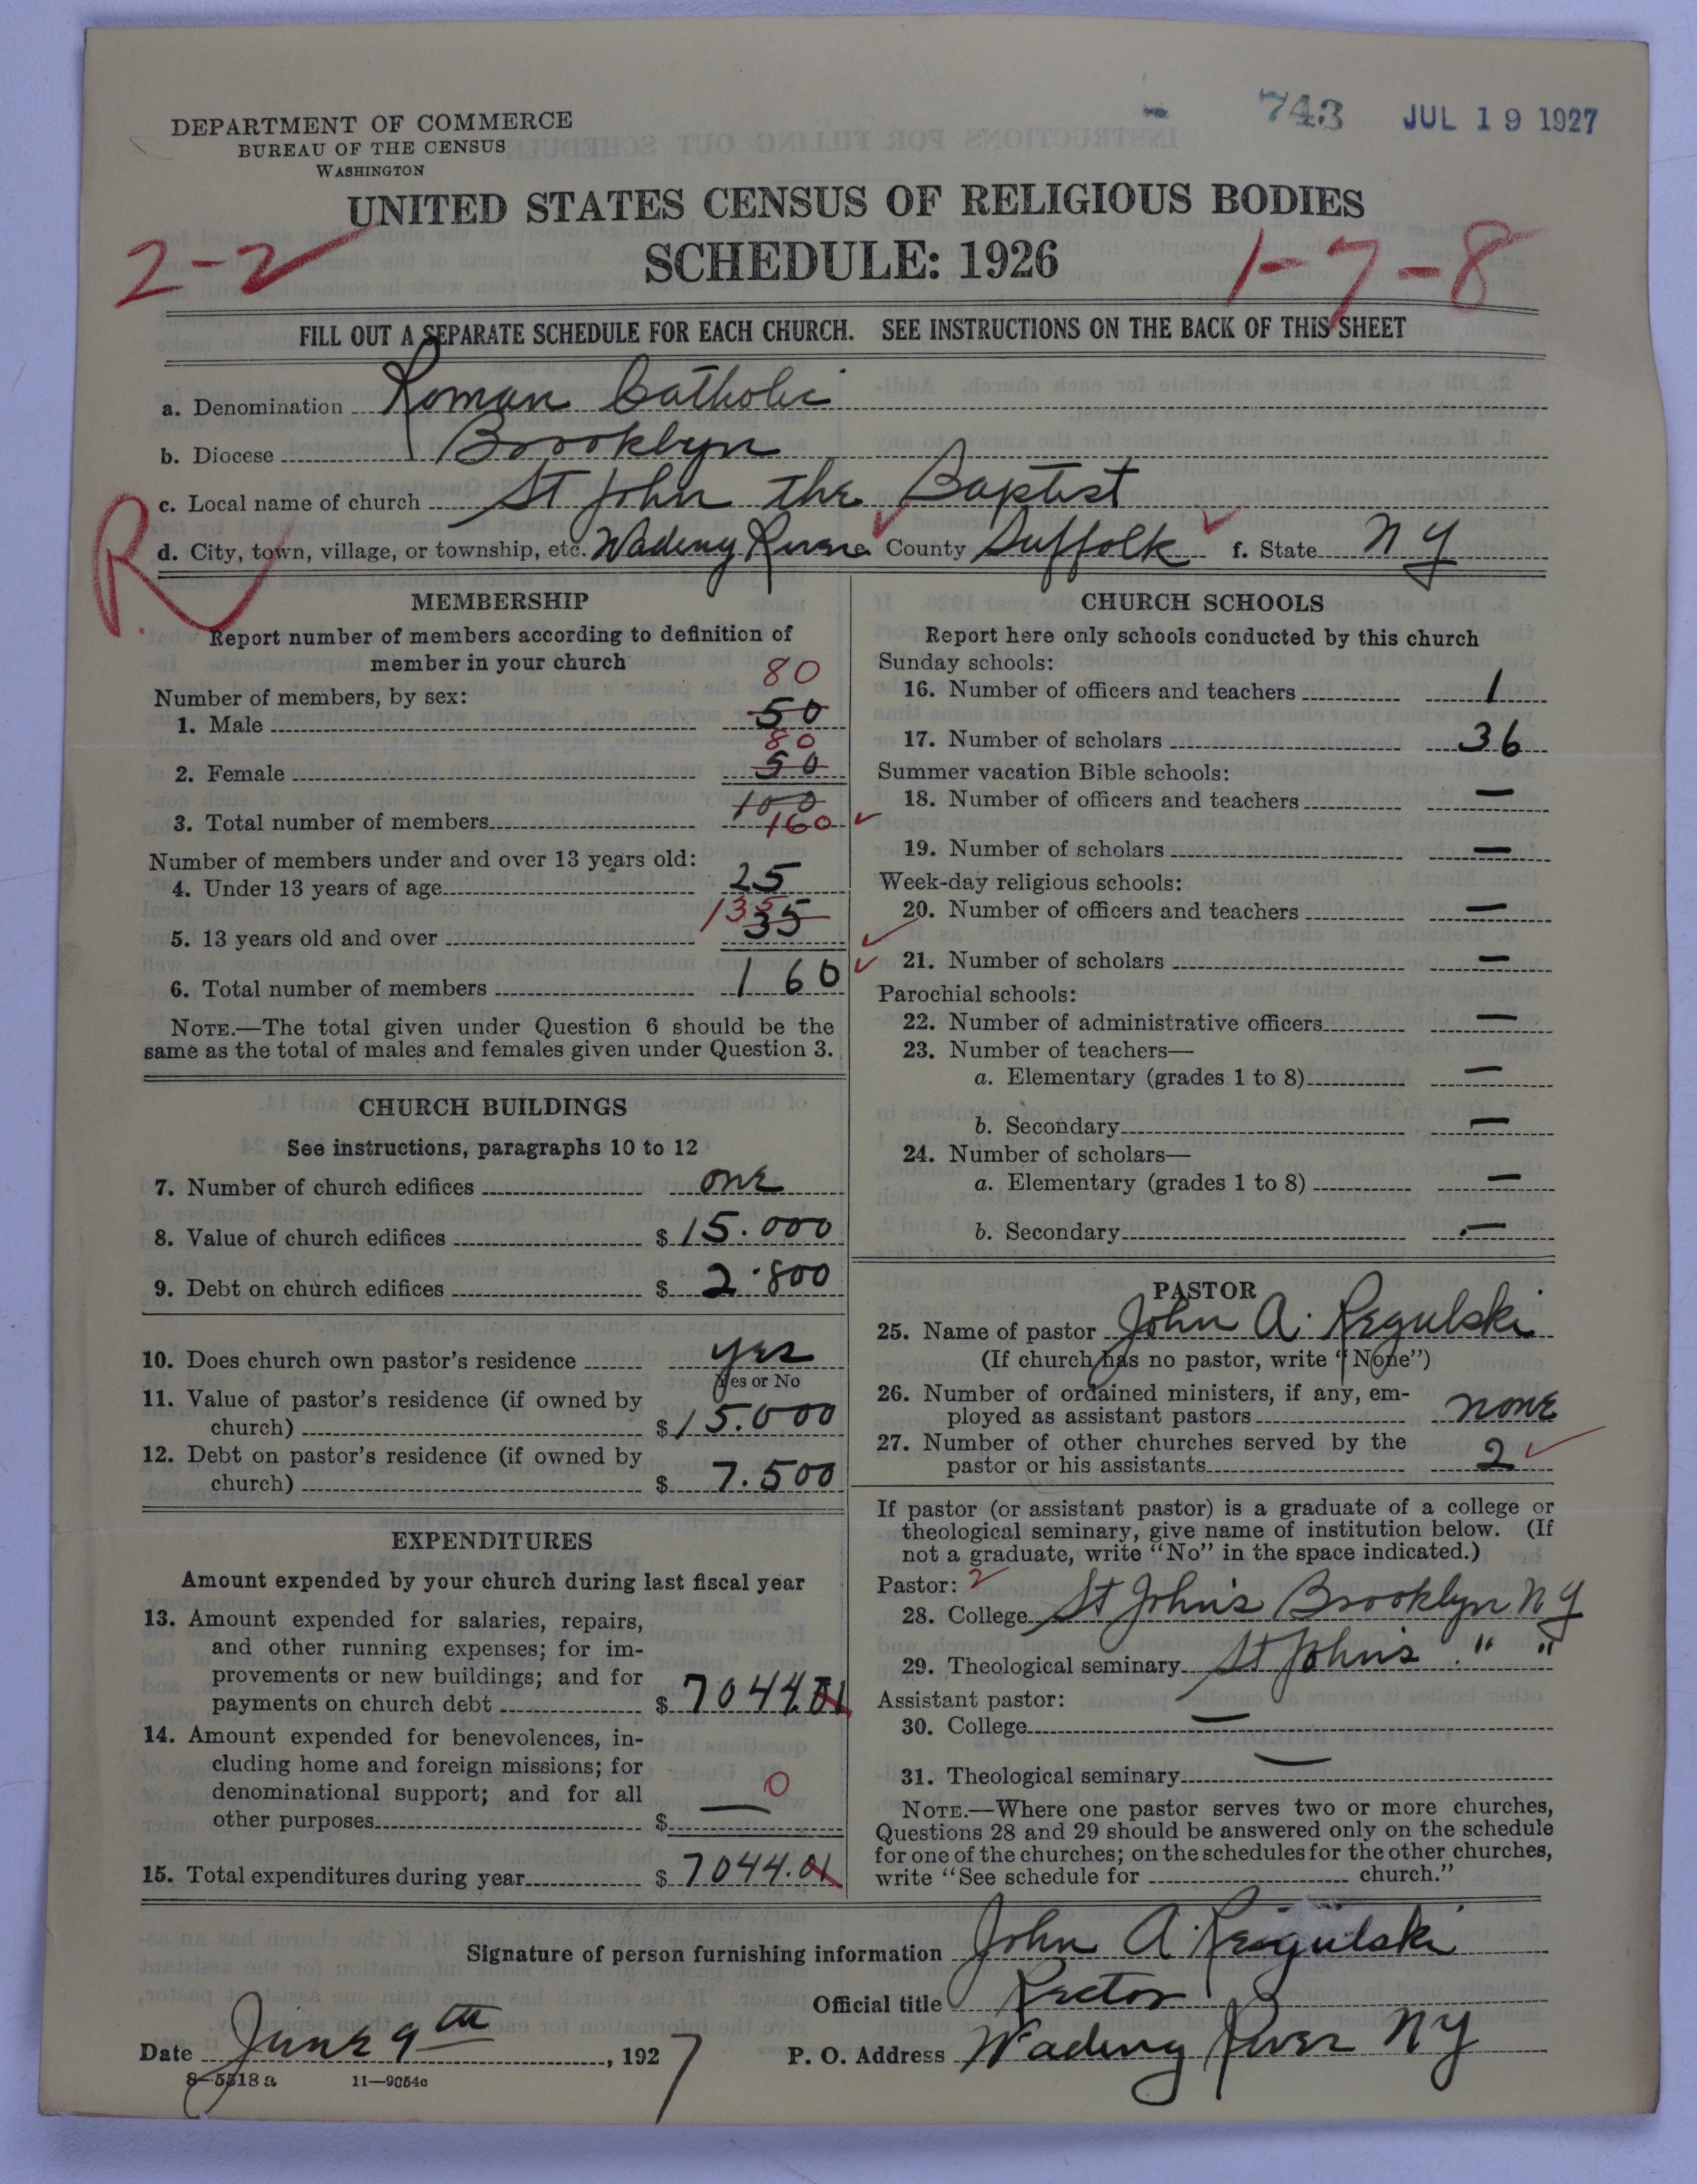 743 JUL 19 1927
DEPARTMENT OF COMMERCE
BUREAU OF THE CENSUS
WASHINGTON
UNITED STATES CENSUS OF RELIGIOUS BODIES
2-2 SCHEDULE: 1926 1-7-8
FILL OUT A SEPARATE SCHEDULE FOR EACH CHURCH. SEE INSTRUCTIONS ON THE BACK OF THIS SHEET
a. Denomination Roman Catholic
b. Diocese Brooklyn
c. Local name of church St John the Baptist
R
d. City, town, village, or township, etc. Wading River e. County Suffolk f. State N Y
MEMBERSHIP
Report number of members according to definition of
member in your church
Number of members, by sex:
80
1. Male 50
80
2. Female 50
100
3. Total number of members 160
Number of members under and over 13 years old:
4. Under 13 years of age 25
135
5. 13 years old and over 35
6. Total number of members 160
NOTE.—The total given under Question 6 should be the
same as the total of males and females given under Question 3.
CHURCH BUILDINGS
See instructions, paragraphs 10 to 12
7. Number of church edifices one
8. Value of church edifices $ 15.000
9. Debt on church edifices $ 2.800
10. Does church own pastor's residence yes
Yes or No
11. Value of pastor's residence (if owned by
church) $ 15.000
12. Debt on pastor's residence (if owned by
church) $ 7.500
EXPENDITURES
Amount expended by your church during last fiscal year
13. Amount expended for salaries, repairs,
and other running expenses; for im-
provements or new buildings; and for
payments on church debt $ 7044.01
14. Amount expended for benevolences, in-
cluding home and foreign missions; for
denominational support; and for all
other purposes $ — 0
15. Total expenditures during year $ 7044.01
CHURCH SCHOOLS
Report here only schools conducted by this church
Sunday schools:
16. Number of officers and teachers 1
17. Number of scholars 36
Summer vacation Bible schools:
18. Number of officers and teachers —
19. Number of scholars —
Week-day religious schools:
20. Number of officers and teachers —
21. Number of scholars —
Parochial schools:
22. Number of administrative officers —
23. Number of teachers—
a. Elementary (grades 1 to 8) —
b. Secondary —
24. Number of scholars—
a. Elementary (grades 1 to 8) —
b. Secondary —
PASTOR
25. Name of pastor John A. Regulski
(If church has no pastor, write "None")
26. Number of ordained ministers, if any, em-
ployed as assistant pastors none
27. Number of other churches served by the
pastor or his assistants 2
If pastor (or assistant pastor) is a graduate of a college or
theological seminary, give name of institution below. (If
not a graduate, write "No" in the space indicated.)
Pastor: 2
28. College St John's Brooklyn N Y
29. Theological seminary St John's " "
Assistant pastor:
30. College —
31. Theological seminary —
NOTE.—Where one pastor serves two or more churches,
Questions 28 and 29 should be answered only on the schedule
for one of the churches; on the schedules for the other churches,
write "See schedule for church."
Signature of person furnishing information John A. Regulski
Official title Rector
Date June 9th, 1927 P. O. Address Wading River N Y
8—5518 a 11—9054c